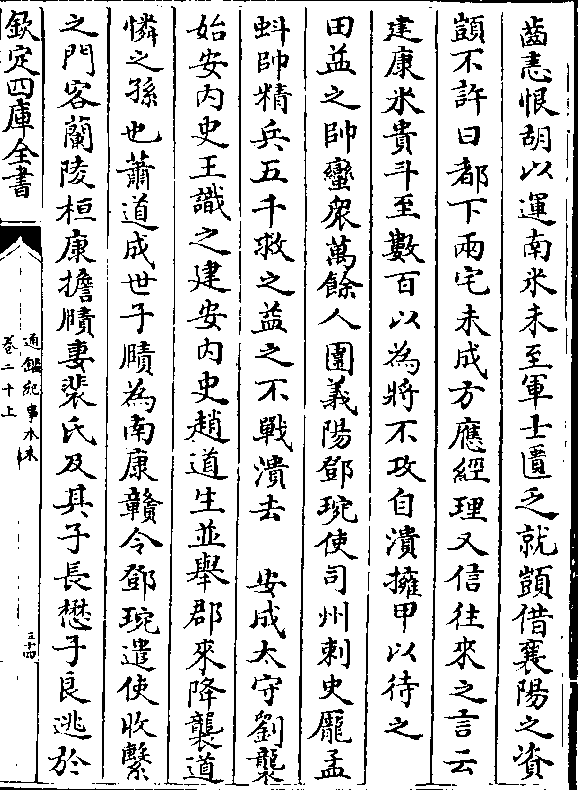 齒恚恨胡以運南米未至軍士匱乏就顗借襄陽之資
顗不許曰都下兩宅未成方應經理又信往來之言云
建康米貴斗至數百以為將不攻自潰擁甲以待之
田益之帥蠻衆萬餘人圍義陽鄧琬使司州刺史龎孟
蚪帥精兵五千救之益之不戰潰去　安成太守劉襲
始安内史王識之建安内史趙道生並舉郡來降襲道
憐之孫也蕭道成世子賾為南康贛令鄧琬遣使收繫
之門客蘭陵桓康擔賾妻裴氏及其子長懋子良逃於
欽定四庫全書
通鑑紀事本末
卷二十上
三十四